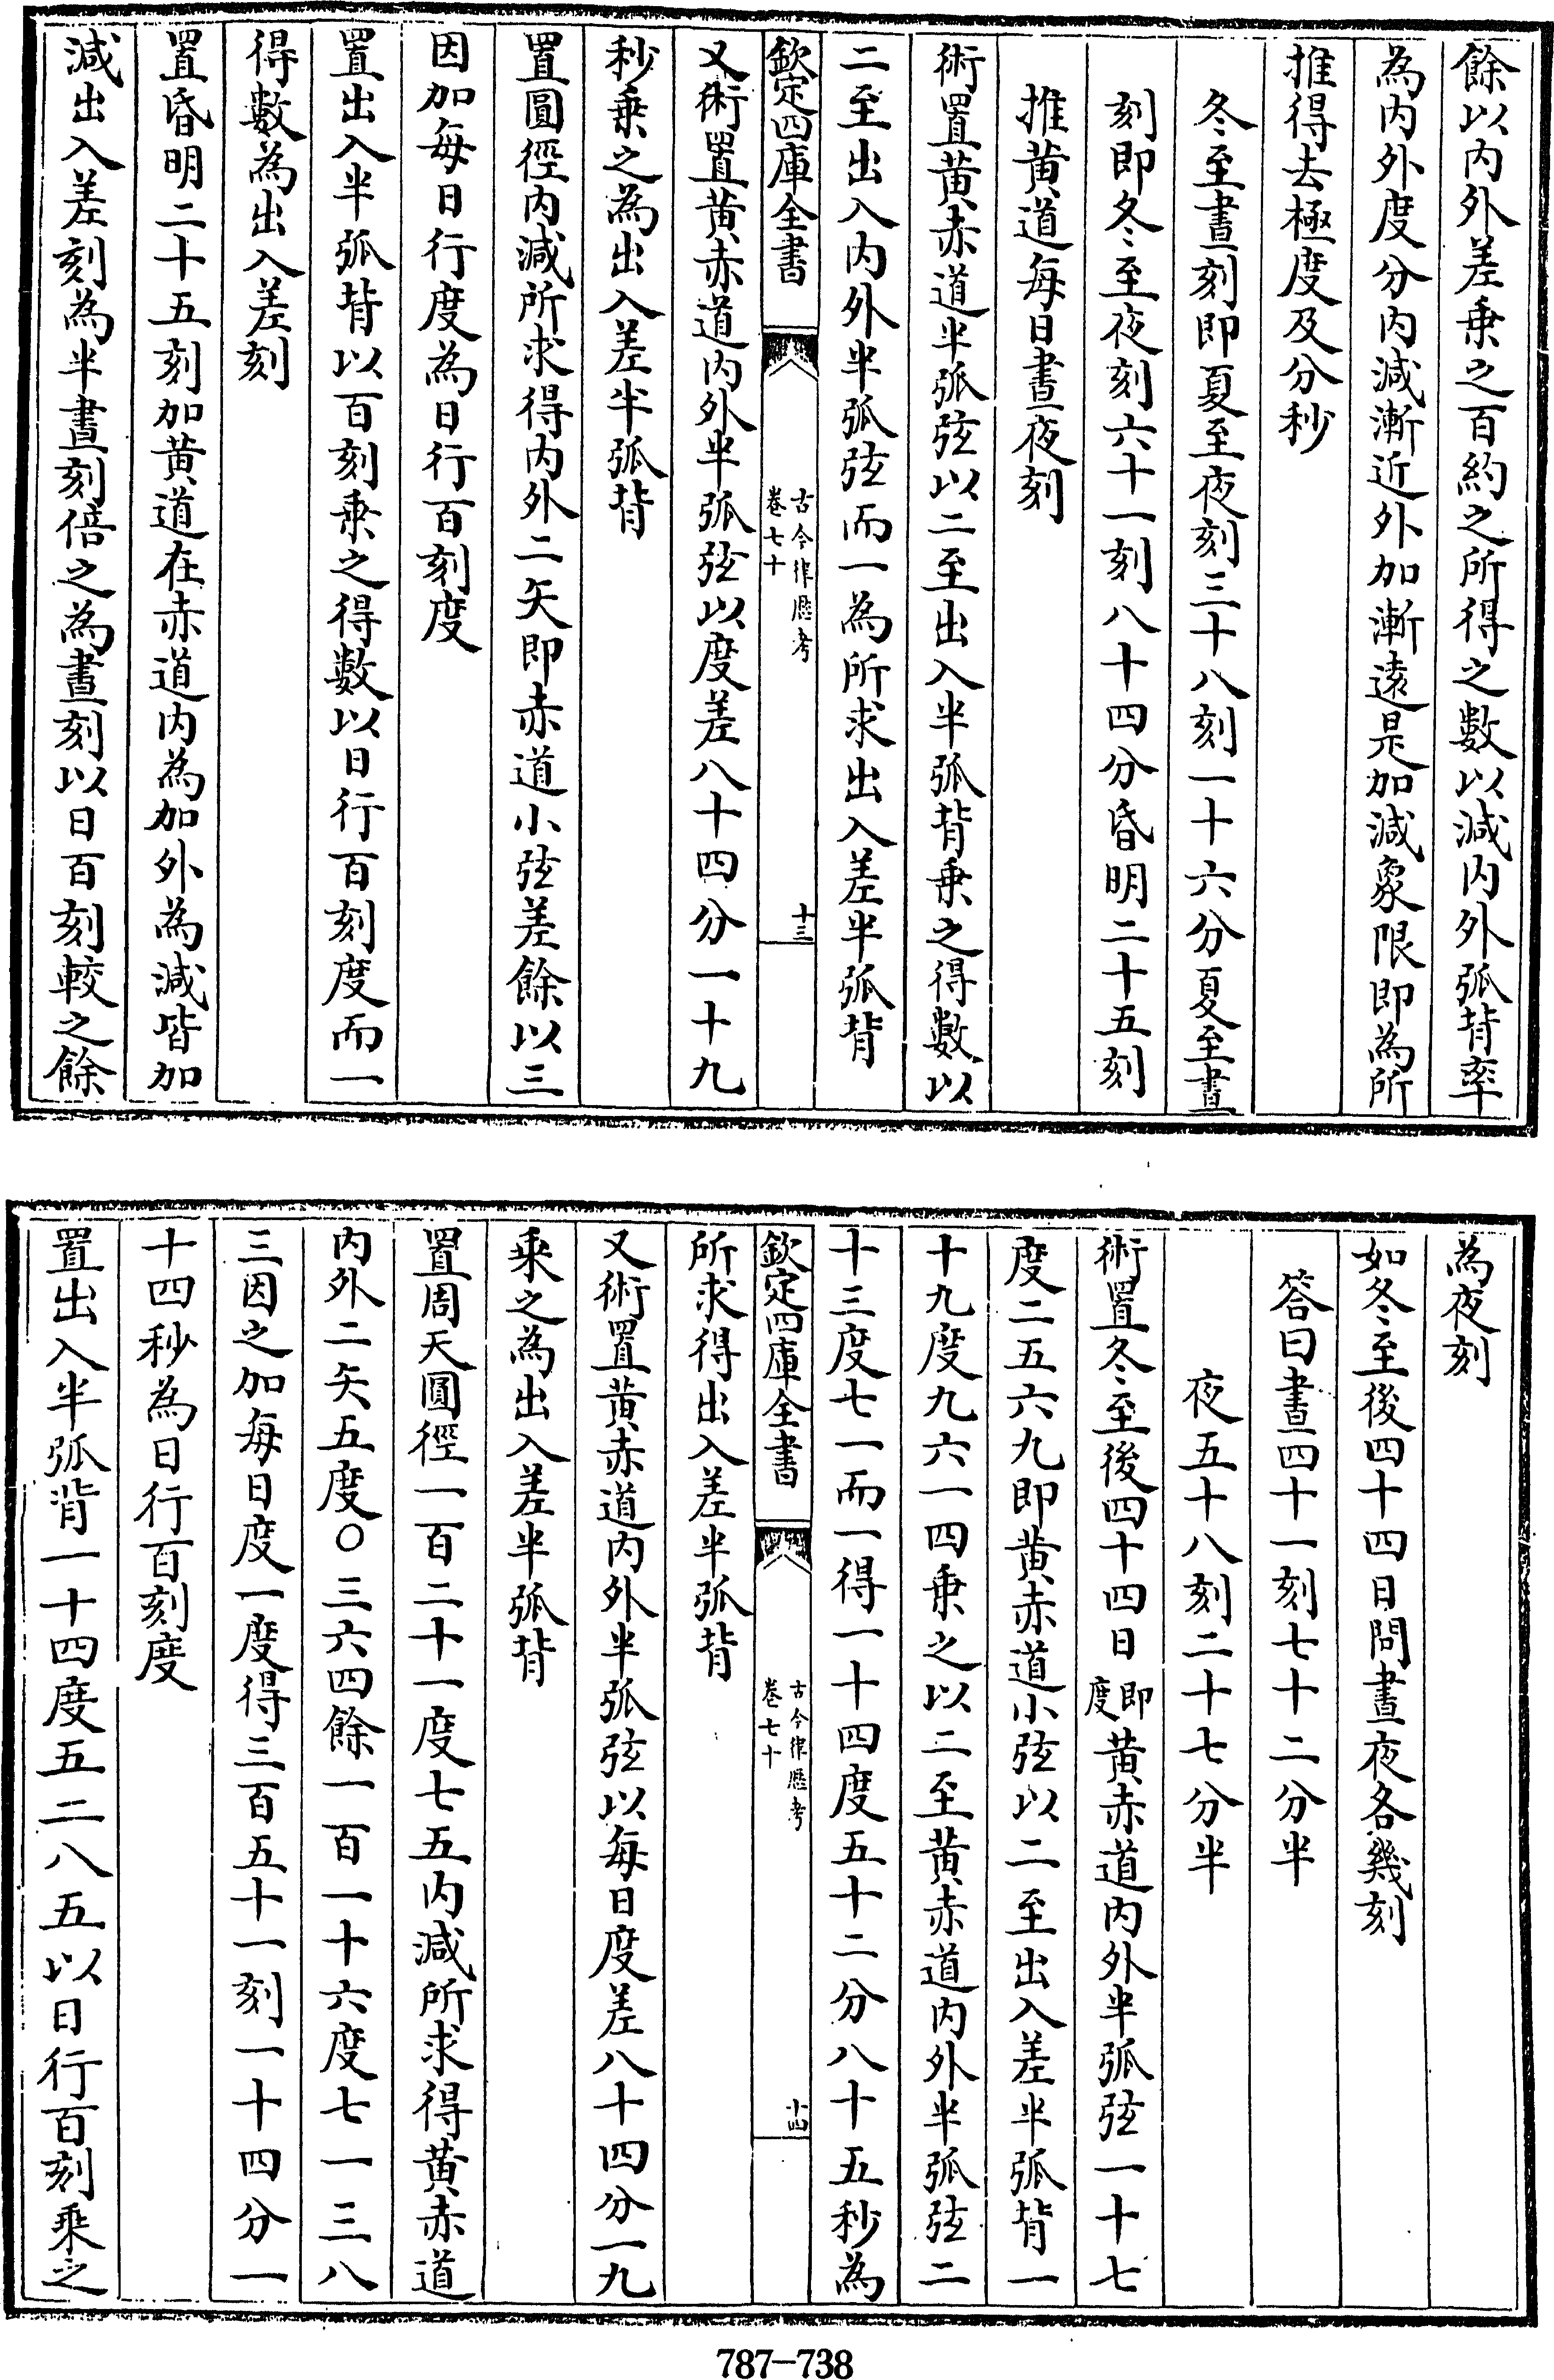 餘以内外差乗之百約之所得之數以減内外弧背率
為内外度分内減漸近外加漸遠是加減象限即為所
推得去極度及分秒
冬至晝刻即夏至夜刻三十八刻一十六分夏至晝
刻即冬至夜刻六十一刻八十四分昏明二十五刻
推黄道每日晝夜刻
術置黄赤道半弧弦以二至出入半弧背乗之得數以
二至出入内外半弧弦而一為所求出入差半弧背
欽定四庫全書
古今律厯考
卷七十
十三
又術置黄赤道内外半弧弦以度差八十四分一十九
秒乗之為出入差半弧背
置圓徑内減所求得内外二矢即赤道小弦差餘以三
因加每日行度為日行百刻度
置出入半弧背以百刻乗之得數以日行百刻度而一
得數為出入差刻
置昏明二十五刻加黄道在赤道内為加外為減皆加
減出入差刻為半晝刻倍之為晝刻以日百刻較之餘
為夜刻
如冬至後四十四日問晝夜各幾刻
答曰晝四十一刻七十二分半
夜五十八刻二十七分半
術置冬至後四十四日即度黄赤道内外半弧弦一十七
度二五六九即黄赤道小弦以二至出入差半弧背一
十九度九六一四乗之以二至黄赤道内外半弧弦二
十三度七一而一得一十四度五十二分八十五秒為
欽定四庫全書
古今律厯考
卷七十
十四
所求得出入差半弧背
又術置黄赤道内外半弧弦以每日度差八十四分一九
乗之為出入差半弧背
置周天圓徑一百二十一度七五内減所求得黄赤道
内外二矢五度〇三六四餘一百一十六度七一三八
三因之加每日度一度得三百五十一刻一十四分一
十四秒為日行百刻度
置出入半弧背一十四度五二八五以日行百刻乗之
787-738